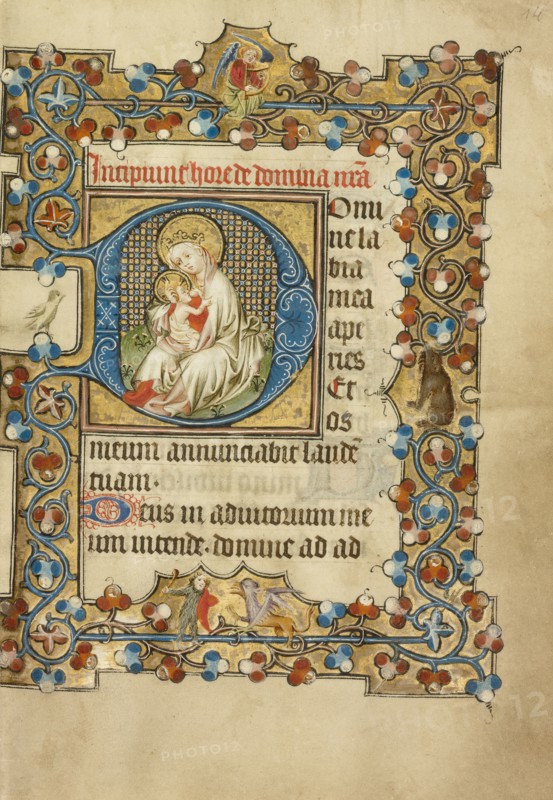 Incipiunt hore de domina nr̃a
Domi
ne la
bia
mea
ape
ries
Et
os
meum annunciabit laudē
tuam.
Deus in adiutorium me
um intende. domine ad ad
PHOTO12
PHOTO12